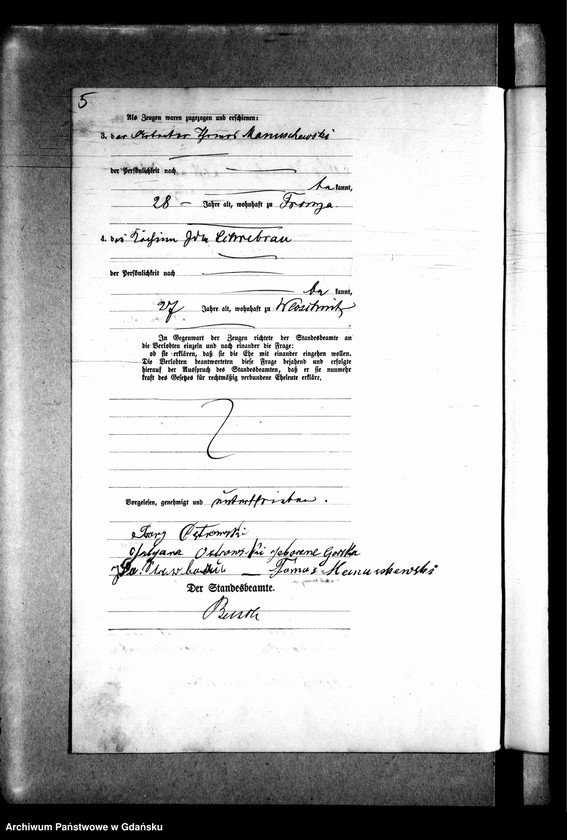 5
Als Zeugen waren zugezogen und erschienen:
3. der Arbeiter Thomas Manuschewski
der Persönlichkeit nach
be kannt,
28 Jahre alt, wohnhaft zu
4. die Köchin Ida
der Persönlichkeit nach
be kannt,
27 Jahre alt, wohnhaft zu
In Gegenwart der Zeugen richtete der Standesbeamte an
die Verlobten einzeln und nach einander die Frage:
ob sie erklären, daß sie die Ehe mit einander eingehen wollen.
Die Verlobten beantworteten diese Frage bejahend und erfolgte
hierauf der Ausspruch des Standesbeamten, daß er sie nunmehr
kraft des Gesetzes für rechtmäßig verbundene Eheleute erkläre.
Vorgelesen, genehmigt und unterschrieben.
Ostrowski
Ostrowski geborene Gorska
Ida Tomas Manuschewski
Der Standesbeamte.
Archiwum Państwowe w Gdańsku